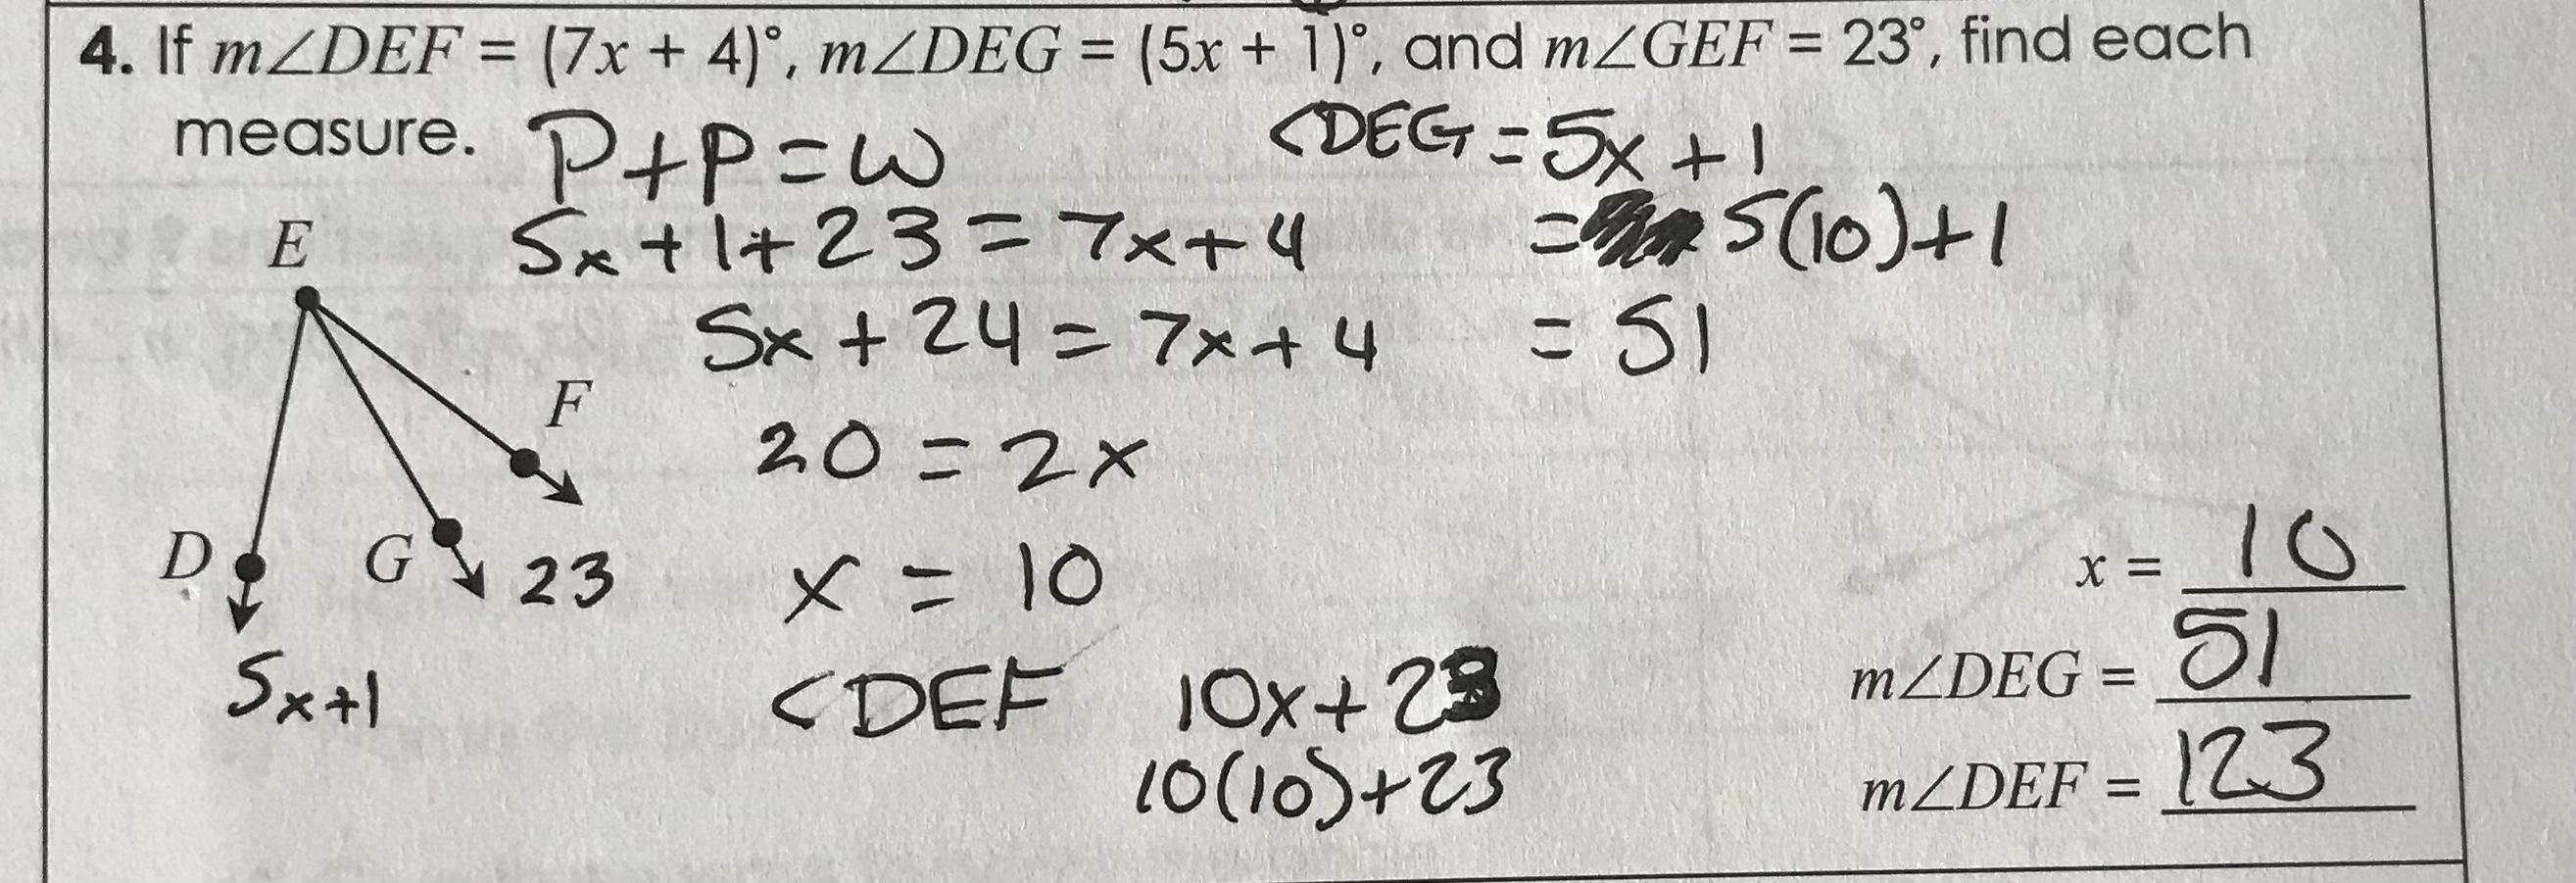 4. If m∠DEF = (7x + 4)°, m∠DEG = (5x + 1)°, and m∠GEF = 23°, find each
measure.
P+P=W
5x+1+23=7x+4
5x+24=7x+4
20=2x
x=10
<DEG=5x+1
=5(10)+1
=51
E
F
D
G
23
5x+1
<DEF 10x+23
10(10)+23
x = 10
m∠DEG = 51
m∠DEF = 123